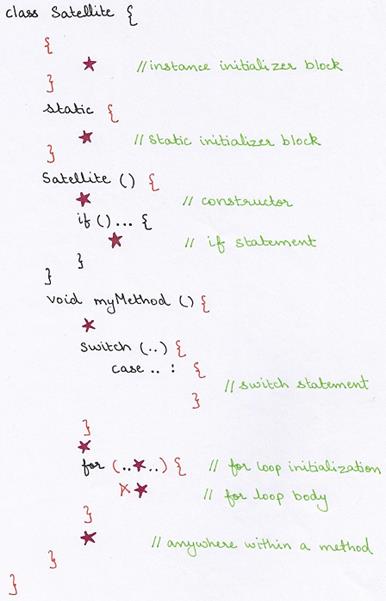 class Satellite {
{
//instance initializer block
}
static {
} //static initializer block
Satellite () {
// constructor
if () ... {
// if statement
}
}
void myMethod () {
switch (..) {
case .. : {
//switch statement
}
}
for (.. ★ ..) { // for loop initialization
★ // for loop body
}
★ //anywhere within a method
}
}